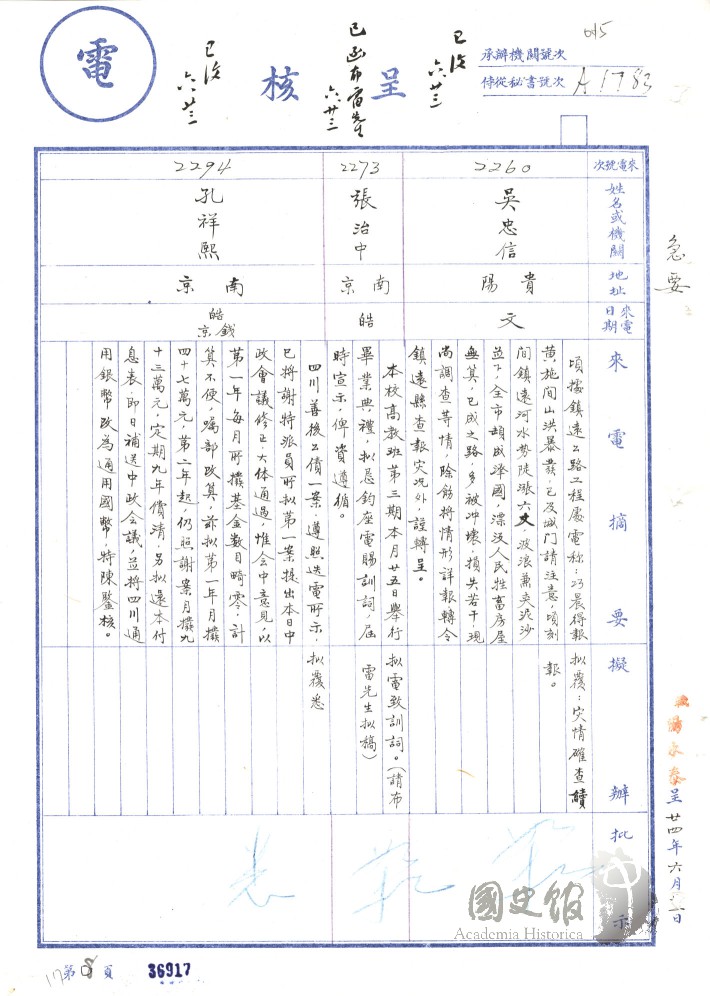 電
呈核
已復 六廿三
已函布雷先生 六廿三
已復 六廿三
015
承辦機關號次
侍從秘書號次 A1783
急要
來電號次
姓名或機關
地址
來電日期
來電摘要
擬辦
批示
2260
吳忠信
貴陽
文
頃據鎮遠公路工程處電稱:巧晨得報
黃施間山洪暴發,已及城門請注意,頃刻
間鎮遠河水勢陡漲六丈,波浪兼夾泥沙
並下,全市頓成澤國,漂沒人民牲畜房屋
無算,已成之路,多被冲壞,損失若干,現
尚調查等情,除飭將情形詳報轉令
鎮遠縣查報灾况外,謹轉呈。
擬覆:灾情確查續
報。
2273
張治中
南京
皓
本校高教班第三期本月廿五日舉行
畢業典禮,擬懇鈞座電賜訓詞,屆
時宣示,俾資遵循。
擬電致訓詞。(請布
雷先生擬稿)
2294
孔祥熙
南京
皓京錢
四川善後公債一案,遵照迭電所示,
已將謝特派員所擬第一案提出本日中
政會議修正,大体通過,惟會中意見,以
第一年每月所撥基金數目畸零,計
算不便,囑部改算,茲擬第一年月撥
四十七萬元,第二年起,仍照謝案月撥九
十三萬元,定期九年償清,另擬還本付
息表,即日補送中政会議,並將四川通
用銀幣改為通用國幣,特陳鑒核。
擬覆悉
楊永泰呈 廿四年六月 日
國史館
Academia Historica
第 頁
36917